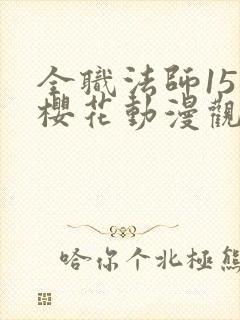 全職法師15
櫻花動漫觀
哈你个北極熊